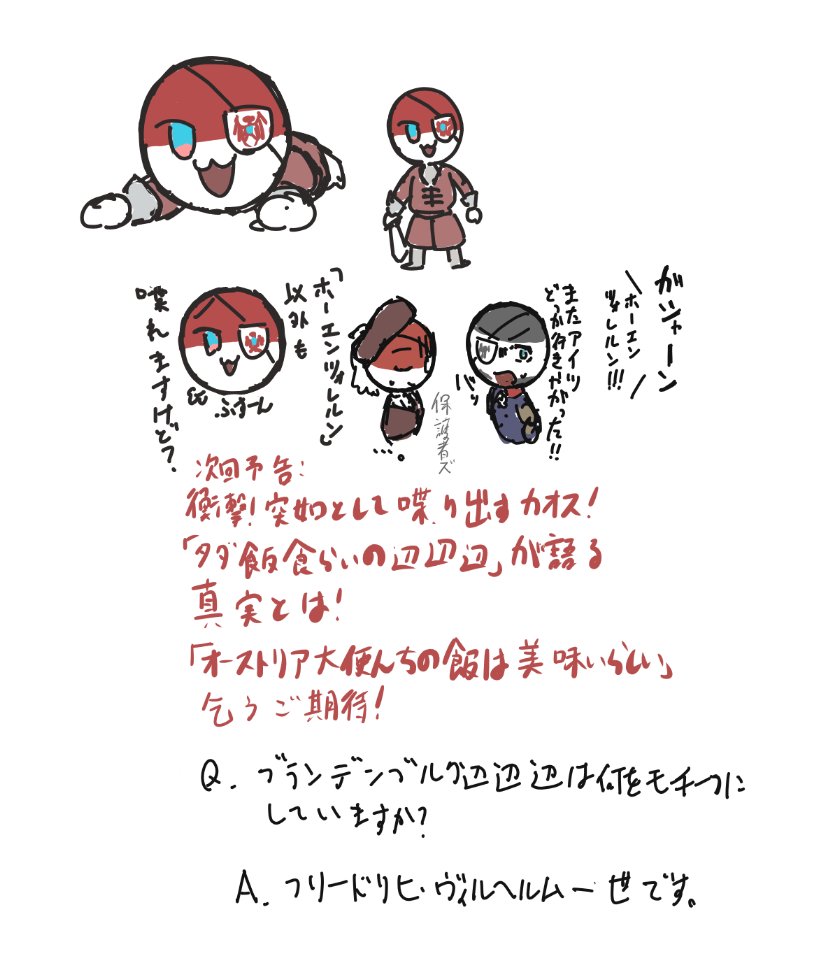 ガシャーン
\ホーエン
ツォレルン!!!/
またアイツ
どっか行きやがった!!
バッ
保護者ズ
…。
「ホーエンツォレルン」
以外も
喋れますけど?
ふすーん
次回予告:
衝撃!突如として喋り出すカオス!
「タダ飯食らいの辺辺辺」が語る
真実とは!
「オーストリア大使んちの飯は美味いらしい」
乞うご期待!
Q. ブランデンブルグ辺辺辺は何をモチーフに
していますか?
A. フリードリヒ・ヴィルヘルム一世です。